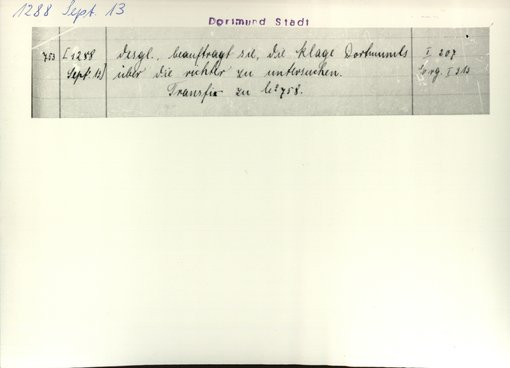 1288 Sept. 13
Dortmund Stadt
753 [1288 Desgl., beauftragt sie, die Klage Dortmunds I 207
Sept. 13] über die Richter zu untersuchen. Erg. I 313
Transfix zu No 758.